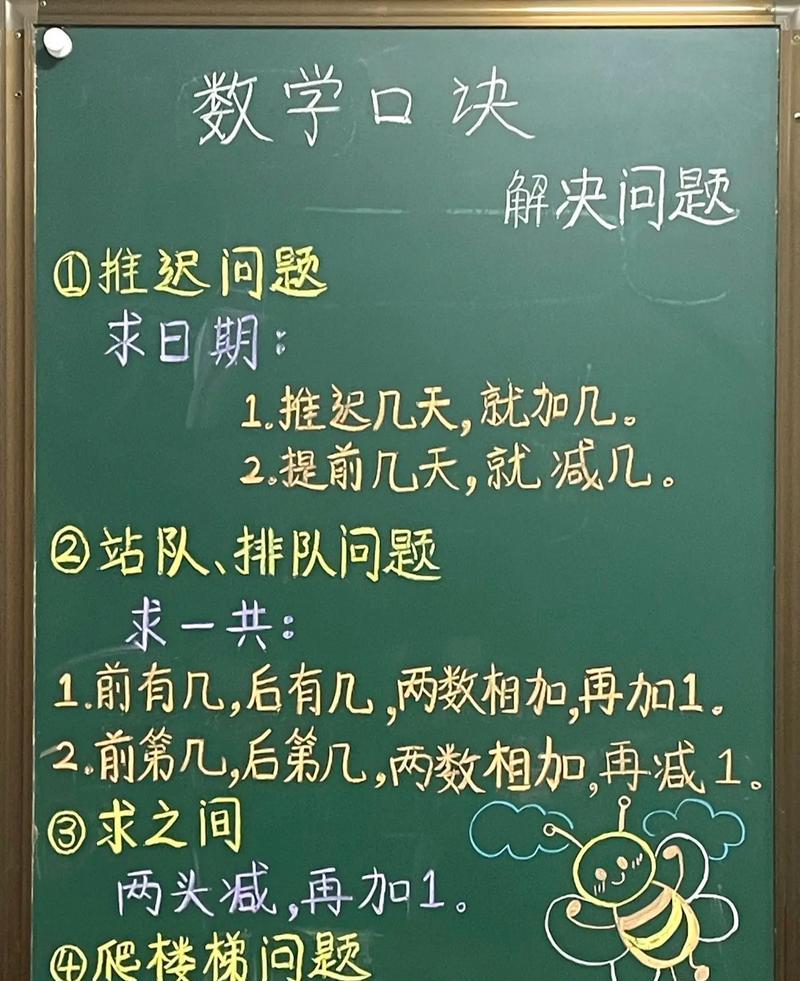 数学口诀
解决问题
①推迟问题
求日期：
1.推迟几天，就加几。
2.提前几天，就减几。
②站队、排队问题
求一共：
1.前有几，后有几，两数相加，再加1。
2.前第几，后第几，两数相加，再减1。
③求之间
两头减，再加1。
④爬楼梯问题